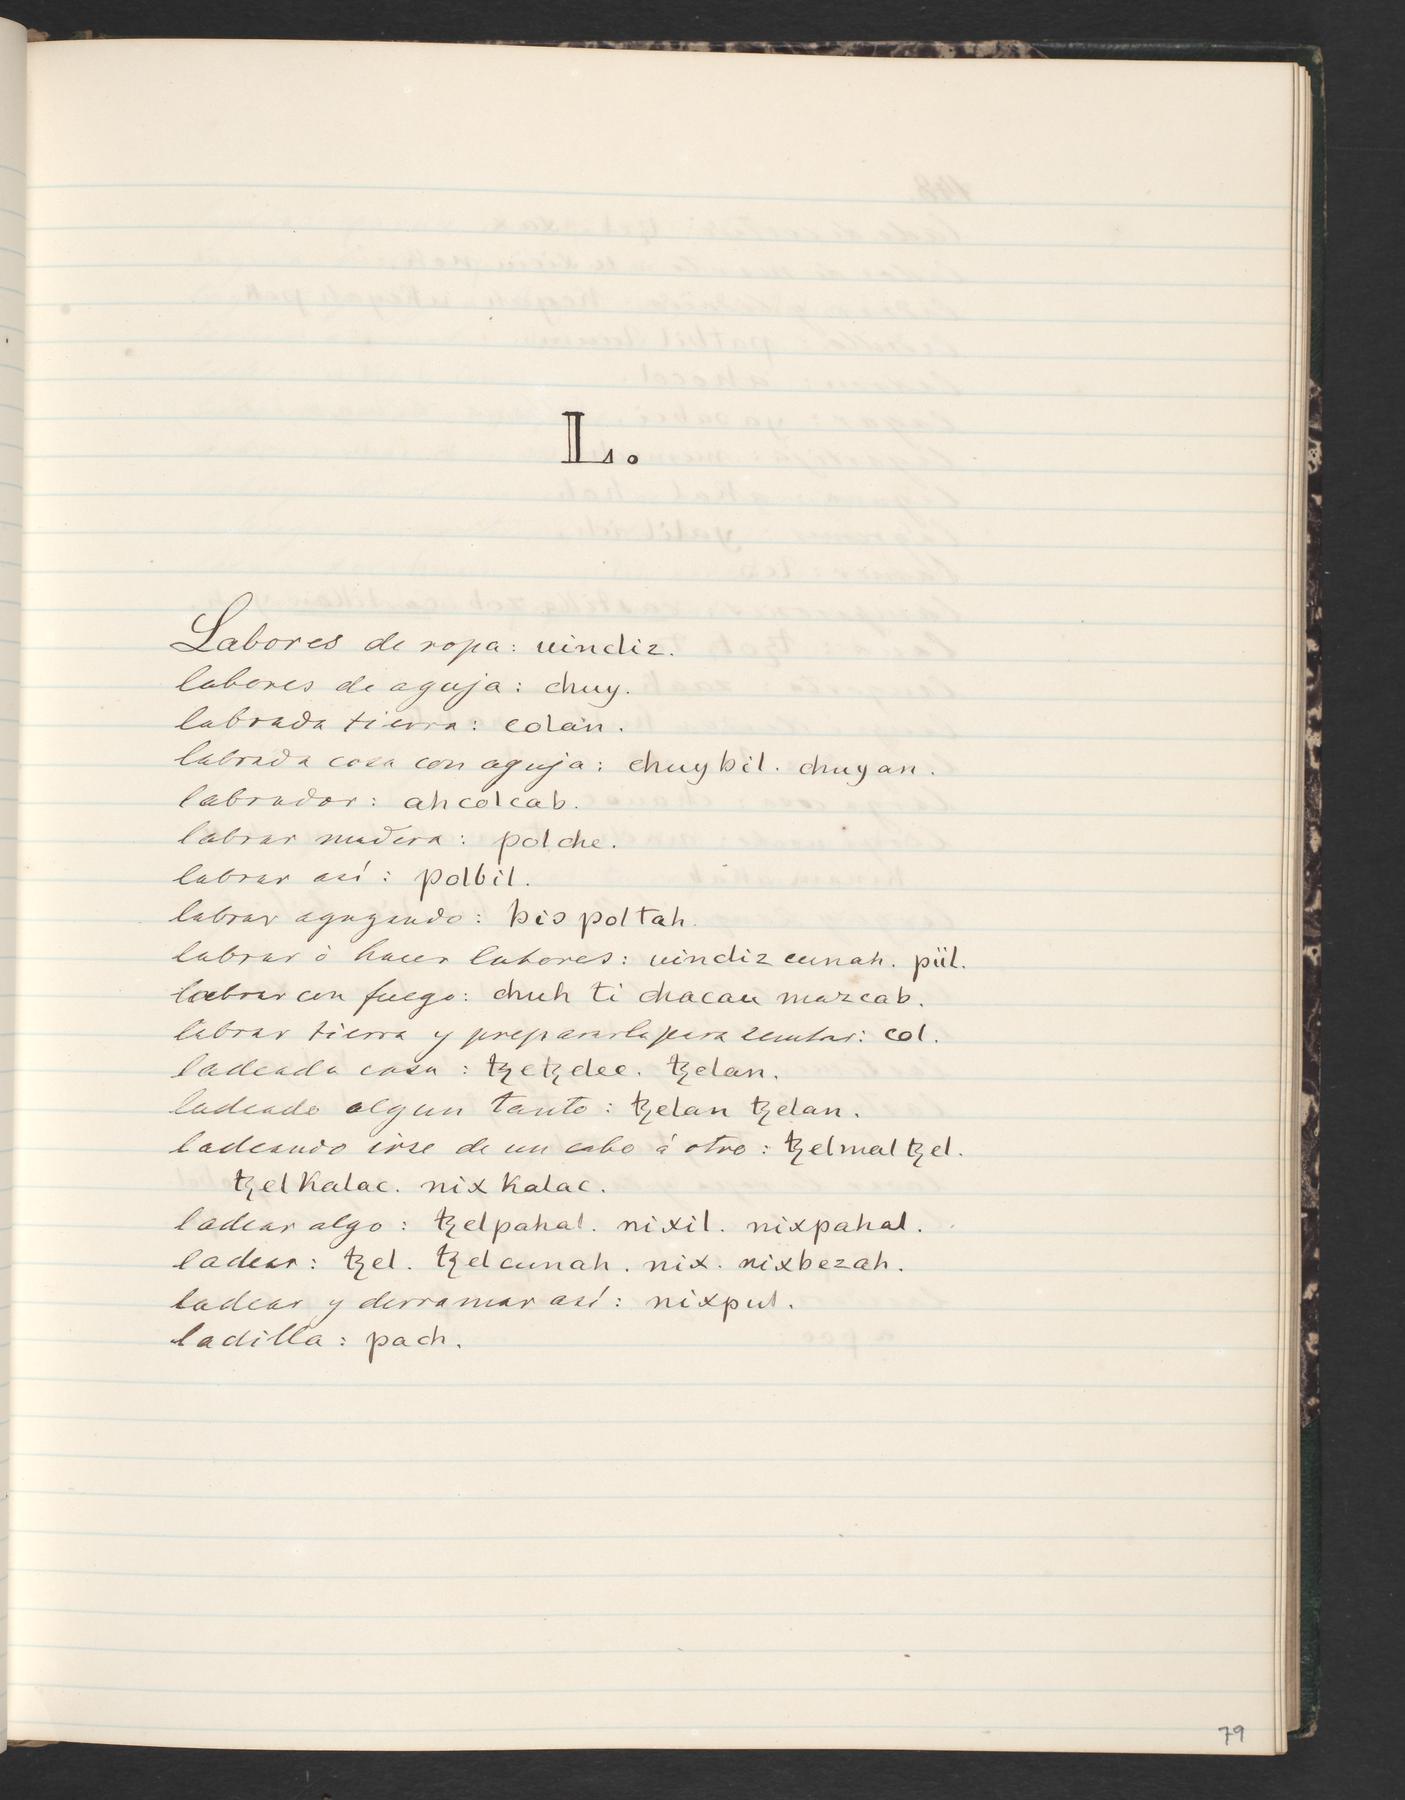 L.
Labores de ropa: uindiz.
labores de aguja: chuy.
labrada tierra: colan.
labrada cosa con aguja: chuybil. chuyan.
labrador: ahcolcab.
labrar madera: polche.
labrar así: polbil.
labrar aguzando: bispoltah.
labrar ò hacer labores: uindizcunah. pül.
labrar con fuego: chuh ti chacau mazcab.
labrar tierra y prepararla para sembrar: col.
ladeada cosa: ꜩeꜩelec. ꜩelan.
ladeado algun tanto: ꜩelan ꜩelan.
ladeando irse de un cabo á otro: ꜩelmalꜩel.
ꜩelkalac. nixkalac.
ladear algo: ꜩelpahal. nixil. nixpahal.
ladear: ꜩel. ꜩelcunah. nix. nixbezah.
ladear y derramar así: nixpul.
ladilla: pach.
79